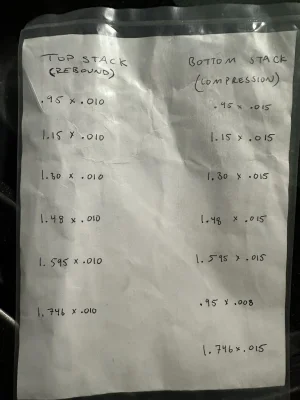 TOP STACK
(REBOUND)
.95 x .010
1.15 x .010
1.30 x .010
1.48 x .010
1.595 x .010
1.746 x .010
BOTTOM STACK
(COMPRESSION)
.95 x .015
1.15 x .015
1.30 x .015
1.48 x .015
1.595 x .015
.95 x .008
1.746 x .015